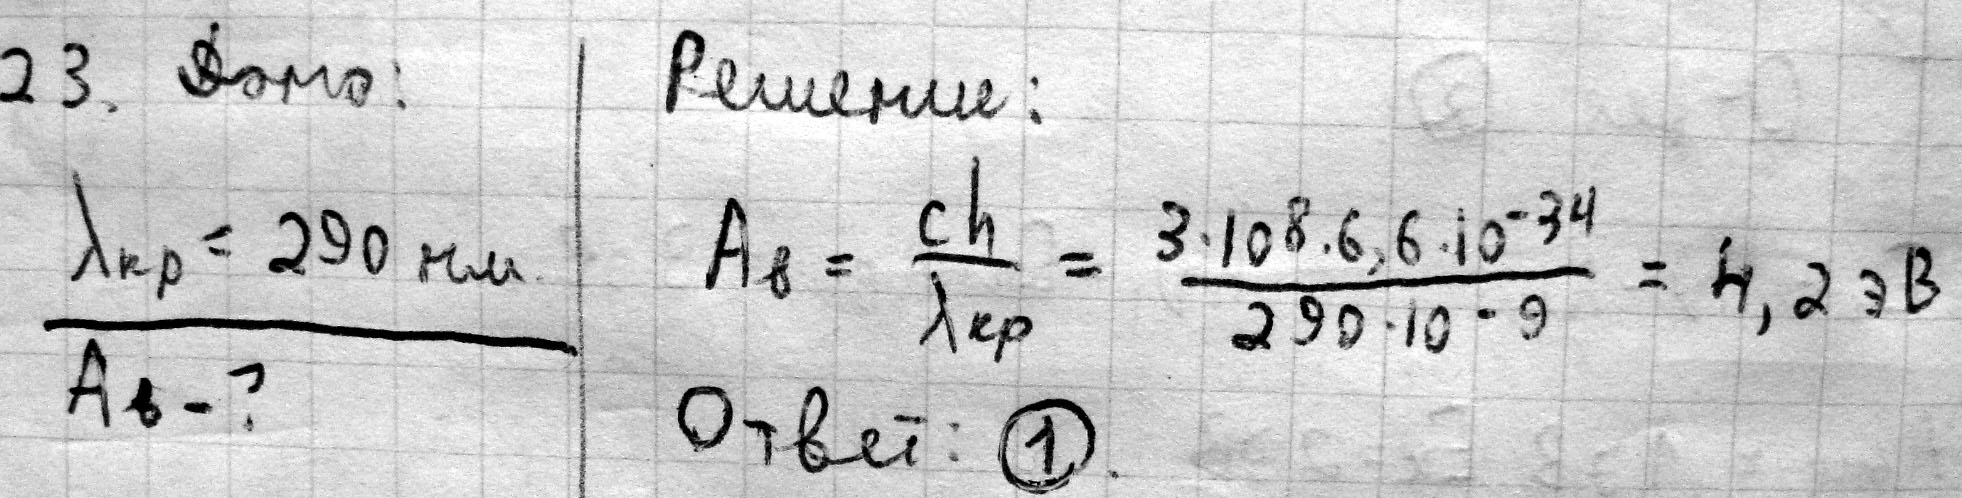 23. Дано:
λкр = 290 нм
Ав - ?
Решение:
Ав = ch/λкр = 3·10⁸·6,6·10⁻³⁴/290·10⁻⁹ = 4,2 эВ
Ответ: ①.